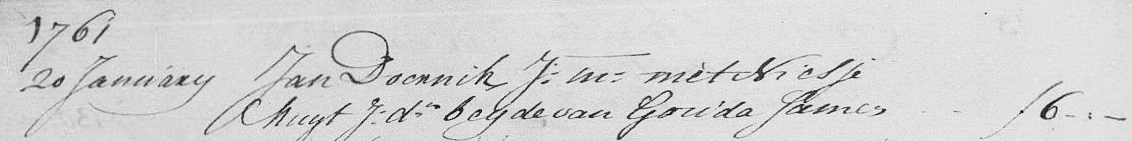 1761
20 January Jan Doornik J: m: met Niesje
Kruyt J: d:n beyde van Gouda sames - - f6-:-